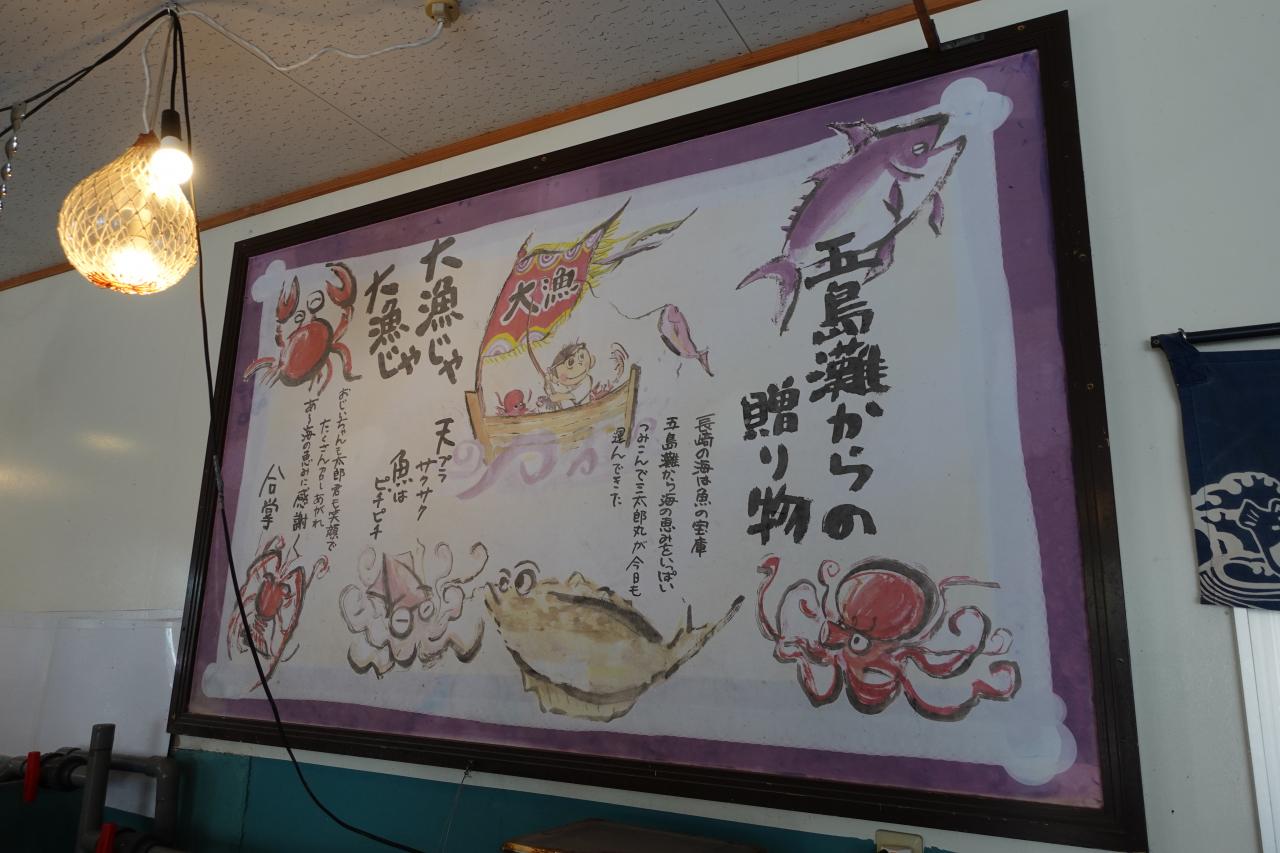 五島灘からの
贈り物
長崎の海は魚の宝庫
五島灘から海の恵みをいっぱい
つみこんで三太郎丸が今日も
運んできた
大漁
大漁じゃ
大漁じゃ
天プラ
サクサク
魚は
ピチピチ
おじいちゃんも太郎君も笑顔で
たくさんめしあがれ
あー海の恵みに感謝
合掌